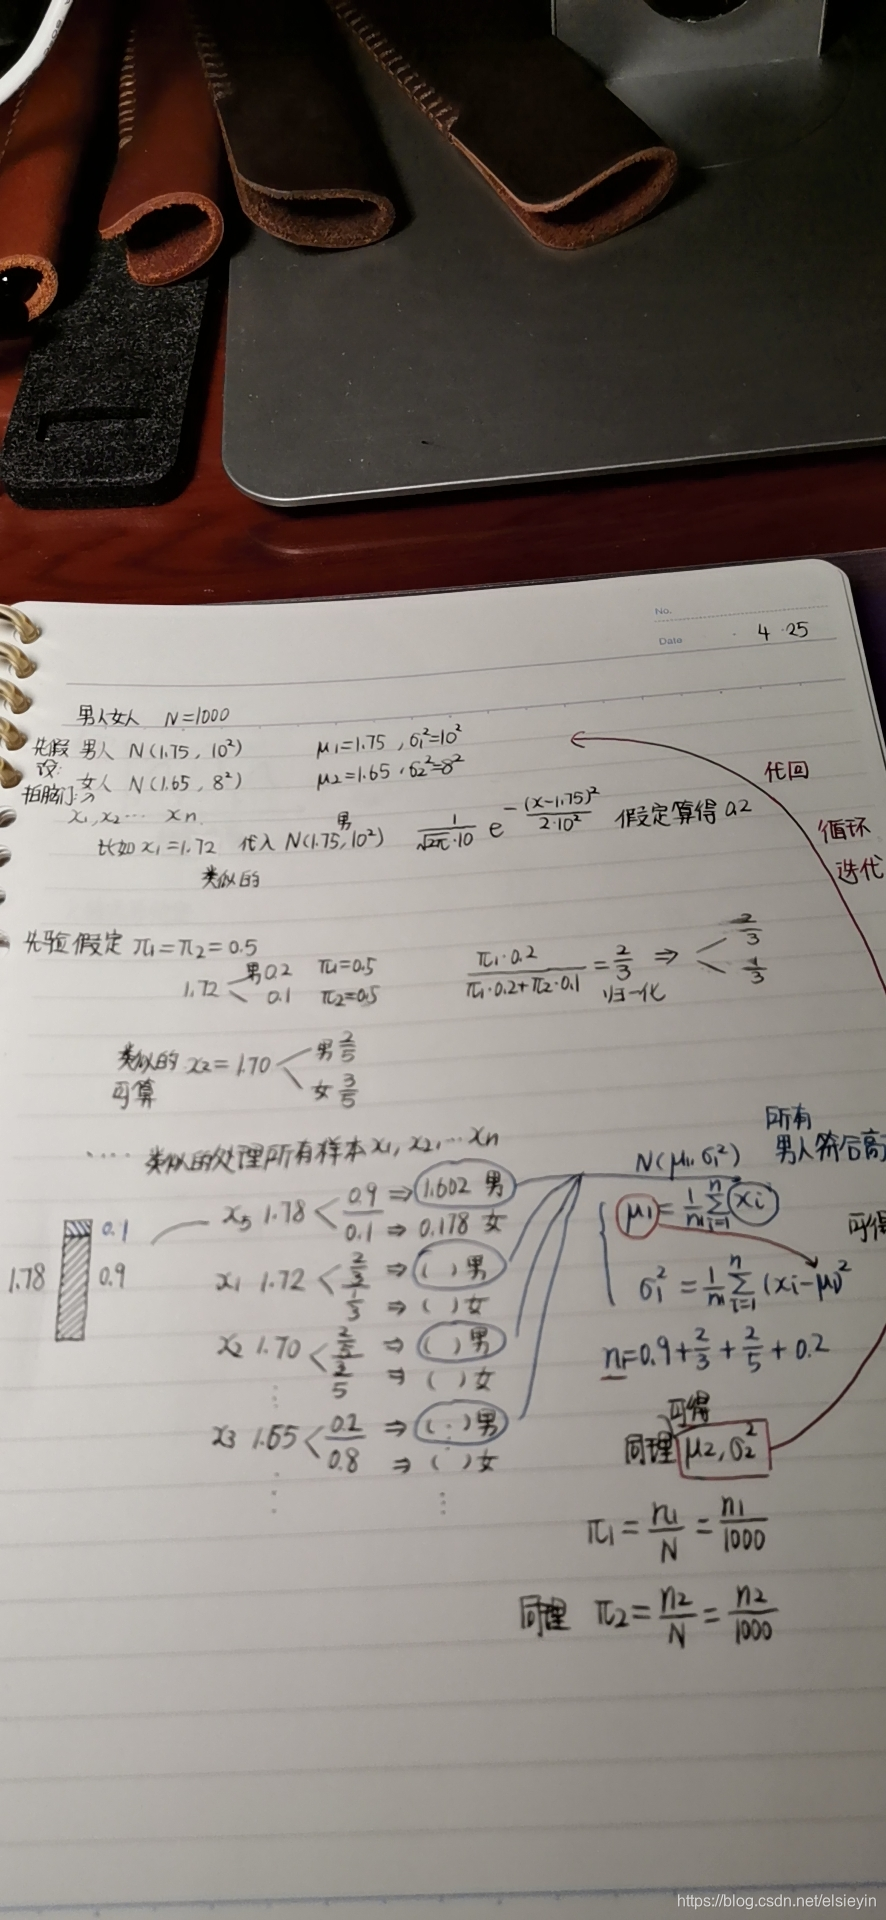 No.
Date 4·25
男人女人 N=1000
先假设: 男人 N(1.75, 10²) μ1=1.75, σ1²=10²
拍脑门: 女人 N(1.65, 8²) μ2=1.65, σ2²=8²
代回
循环
迭代
x1, x2 ··· xn
比如 x1=1.72 代入 男 N(1.75, 10²) 1/(√2π·10) e^(-(x-1.75)²/(2·10²)) 假定算得 0.2
类似的
先验假定 π1=π2=0.5
1.72 男 0.2 π1=0.5
0.1 π2=0.5
π1·0.2/(π1·0.2+π2·0.1) = 2/3 ⇒ 2/3 1/3
归一化
类似的 x2=1.70 男 2/5
可算 女 3/5
···· 类似的处理所有样本 x1, x2, ··· xn
所有
男人符合高
N(μ1, σ1²)
x5 1.78 0.9 ⇒ 1.602 男
0.1 ⇒ 0.178 女
1.78 0.1 0.9
x1 1.72 2/3 ⇒ ( ) 男
1/3 ⇒ ( ) 女
x2 1.70 2/5 ⇒ ( ) 男
5 ⇒ ( ) 女
x3 1.65 0.2 ⇒ ( ) 男
0.8 ⇒ ( ) 女
μ1 = 1/n1 Σ(i=1, n) xi
可得
σ1² = 1/n1 Σ(i=1, n) (xi-μ1)²
n1=0.9+2/3+2/5+0.2
可得
同理 μ2, σ2²
π1 = n1/N = n1/1000
同理 π2 = n2/N = n2/1000
https://blog.csdn.net/elsieyin